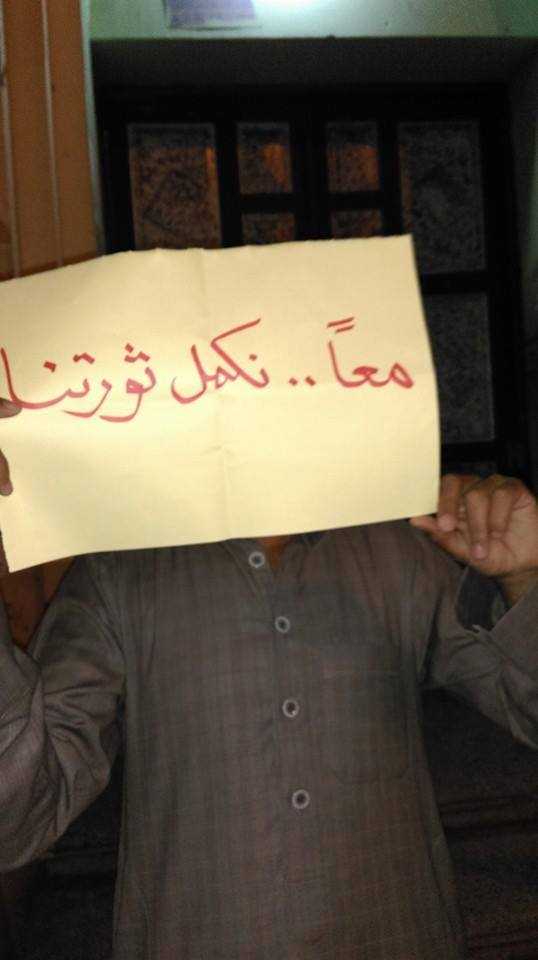 معاً .. نكمل ثورتنا